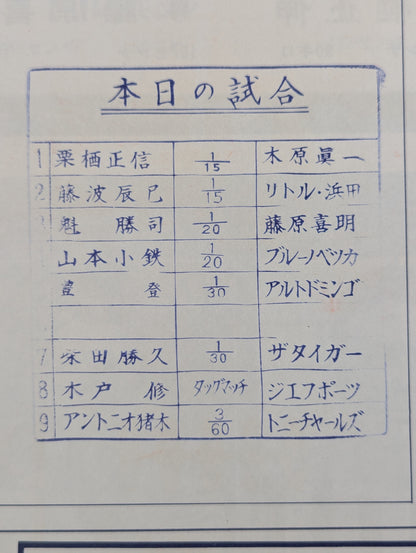 本日の試合
1 栗栖正信 1/15 木原眞一
2 藤波辰巳 1/15 リトル・浜田
3 魁勝司 1/20 藤原喜明
山本小鉄 1/20 ブルーノベツカ
豊登 1/30 アルトドミンゴ
7 柴田勝久 1/30 ザタイガー
8 木戸修 タッグマッチ ジエフポーツ
9 アントニオ猪木 3/60 トニーチャールズ